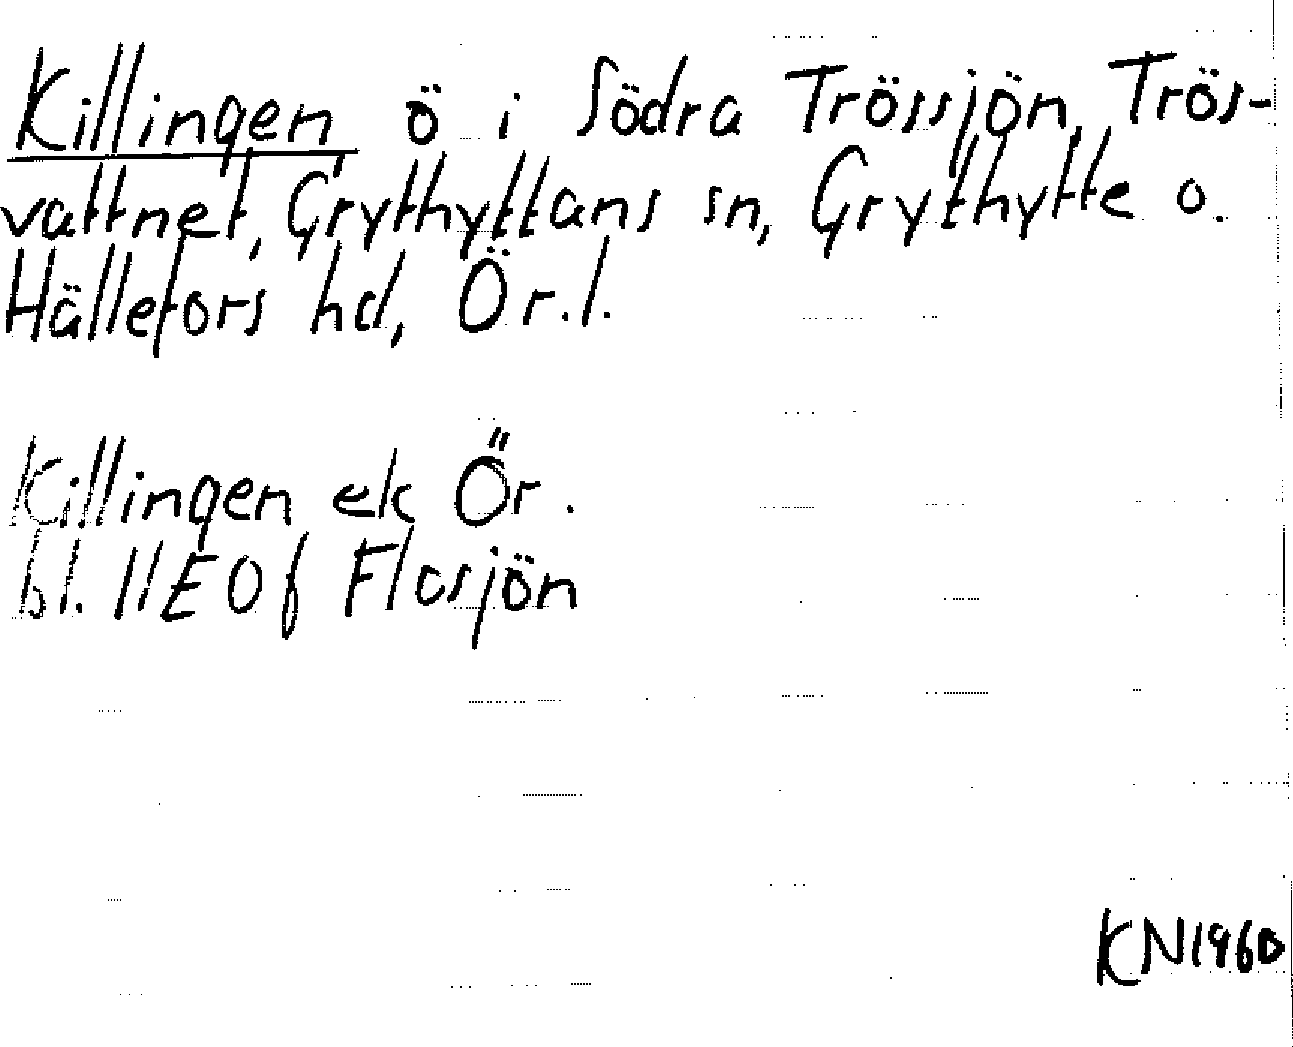 Killingen ö i Södra Trössjön, Trös-
vattnet, Grythyttans sn, Grythytte o.
Hällefors hd, Ör.l.
Killingen ek Ör.
bl. 11E0f Flosjön
KN1960